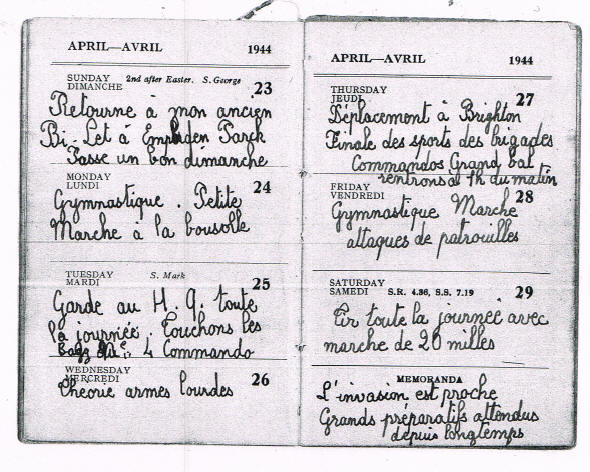 APRIL—AVRIL 1944
SUNDAY 2nd after Easter. S. George 23
DIMANCHE
Retourne à mon ancien
Bi. Let à Park
Passe un bon dimanche
MONDAY 24
LUNDI
Gymnastique. Petite
Marche à la boussole
TUESDAY S. Mark 25
MARDI
Garde au H. Q. toute
la journée. Touchons les
4 Commando
WEDNESDAY 26
MERCREDI
Théorie armes lourdes
APRIL—AVRIL 1944
THURSDAY 27
JEUDI
Déplacement à Brighton
Finale des sports des brigades
Commandos Grand bal
rentrons à 1h du matin
FRIDAY 28
VENDREDI
Gymnastique Marche
attaques de patrouilles
SATURDAY 29
SAMEDI S.R. 4.36, S.S. 7.19
Tir toute la journée avec
marche de 20 milles
MEMORANDA
L'invasion est proche
Grands préparatifs attendus
depuis longtemps